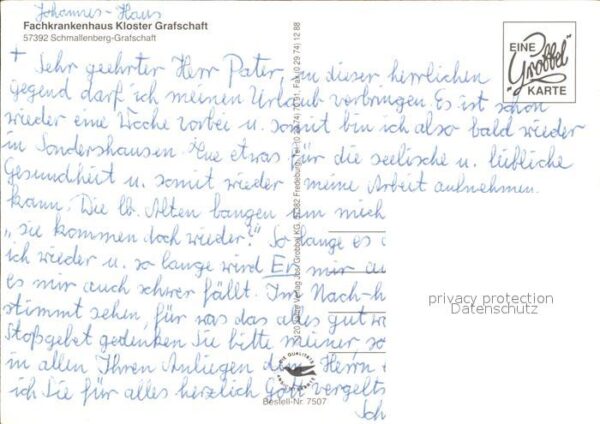 Johannes-Haus
Fachkrankenhaus Kloster Grafschaft
57392 Schmallenberg-Grafschaft
EINE
"Grobbel"
KARTE
+ Sehr geehrter Herr Pater, in dieser herrlichen
Gegend darf ich meinen Urlaub verbringen. Es ist schon
wieder eine Woche vorbei u. somit bin ich also bald wieder
in Sondershausen. Tue etwas für die seelische u. leibliche
Gesundheit u. somit wieder meine Arbeit aufnehmen
kann. Die lb. Alten bangen um mich
"sie kommen doch wieder?" So lange es
ich wieder u. so lange wird Er mir
es mir auch schwer fällt. Im Nach-h
stimmt sehen, für was das alles gut
Stoßgebet gedenken Sie bitte meiner so
in allen Ihren Anliegen dem Herrn
ich Sie für alles herzlich Gott vergelts
Sch
privacy protection
Datenschutz
Verlag Jos. Grobbel KG, 57382 Fredeburg, Tel. (0 29 74) 70 51, Fax (0 29 74) 12 88
DIE QUALITÄTS
Bestell-Nr. 7507